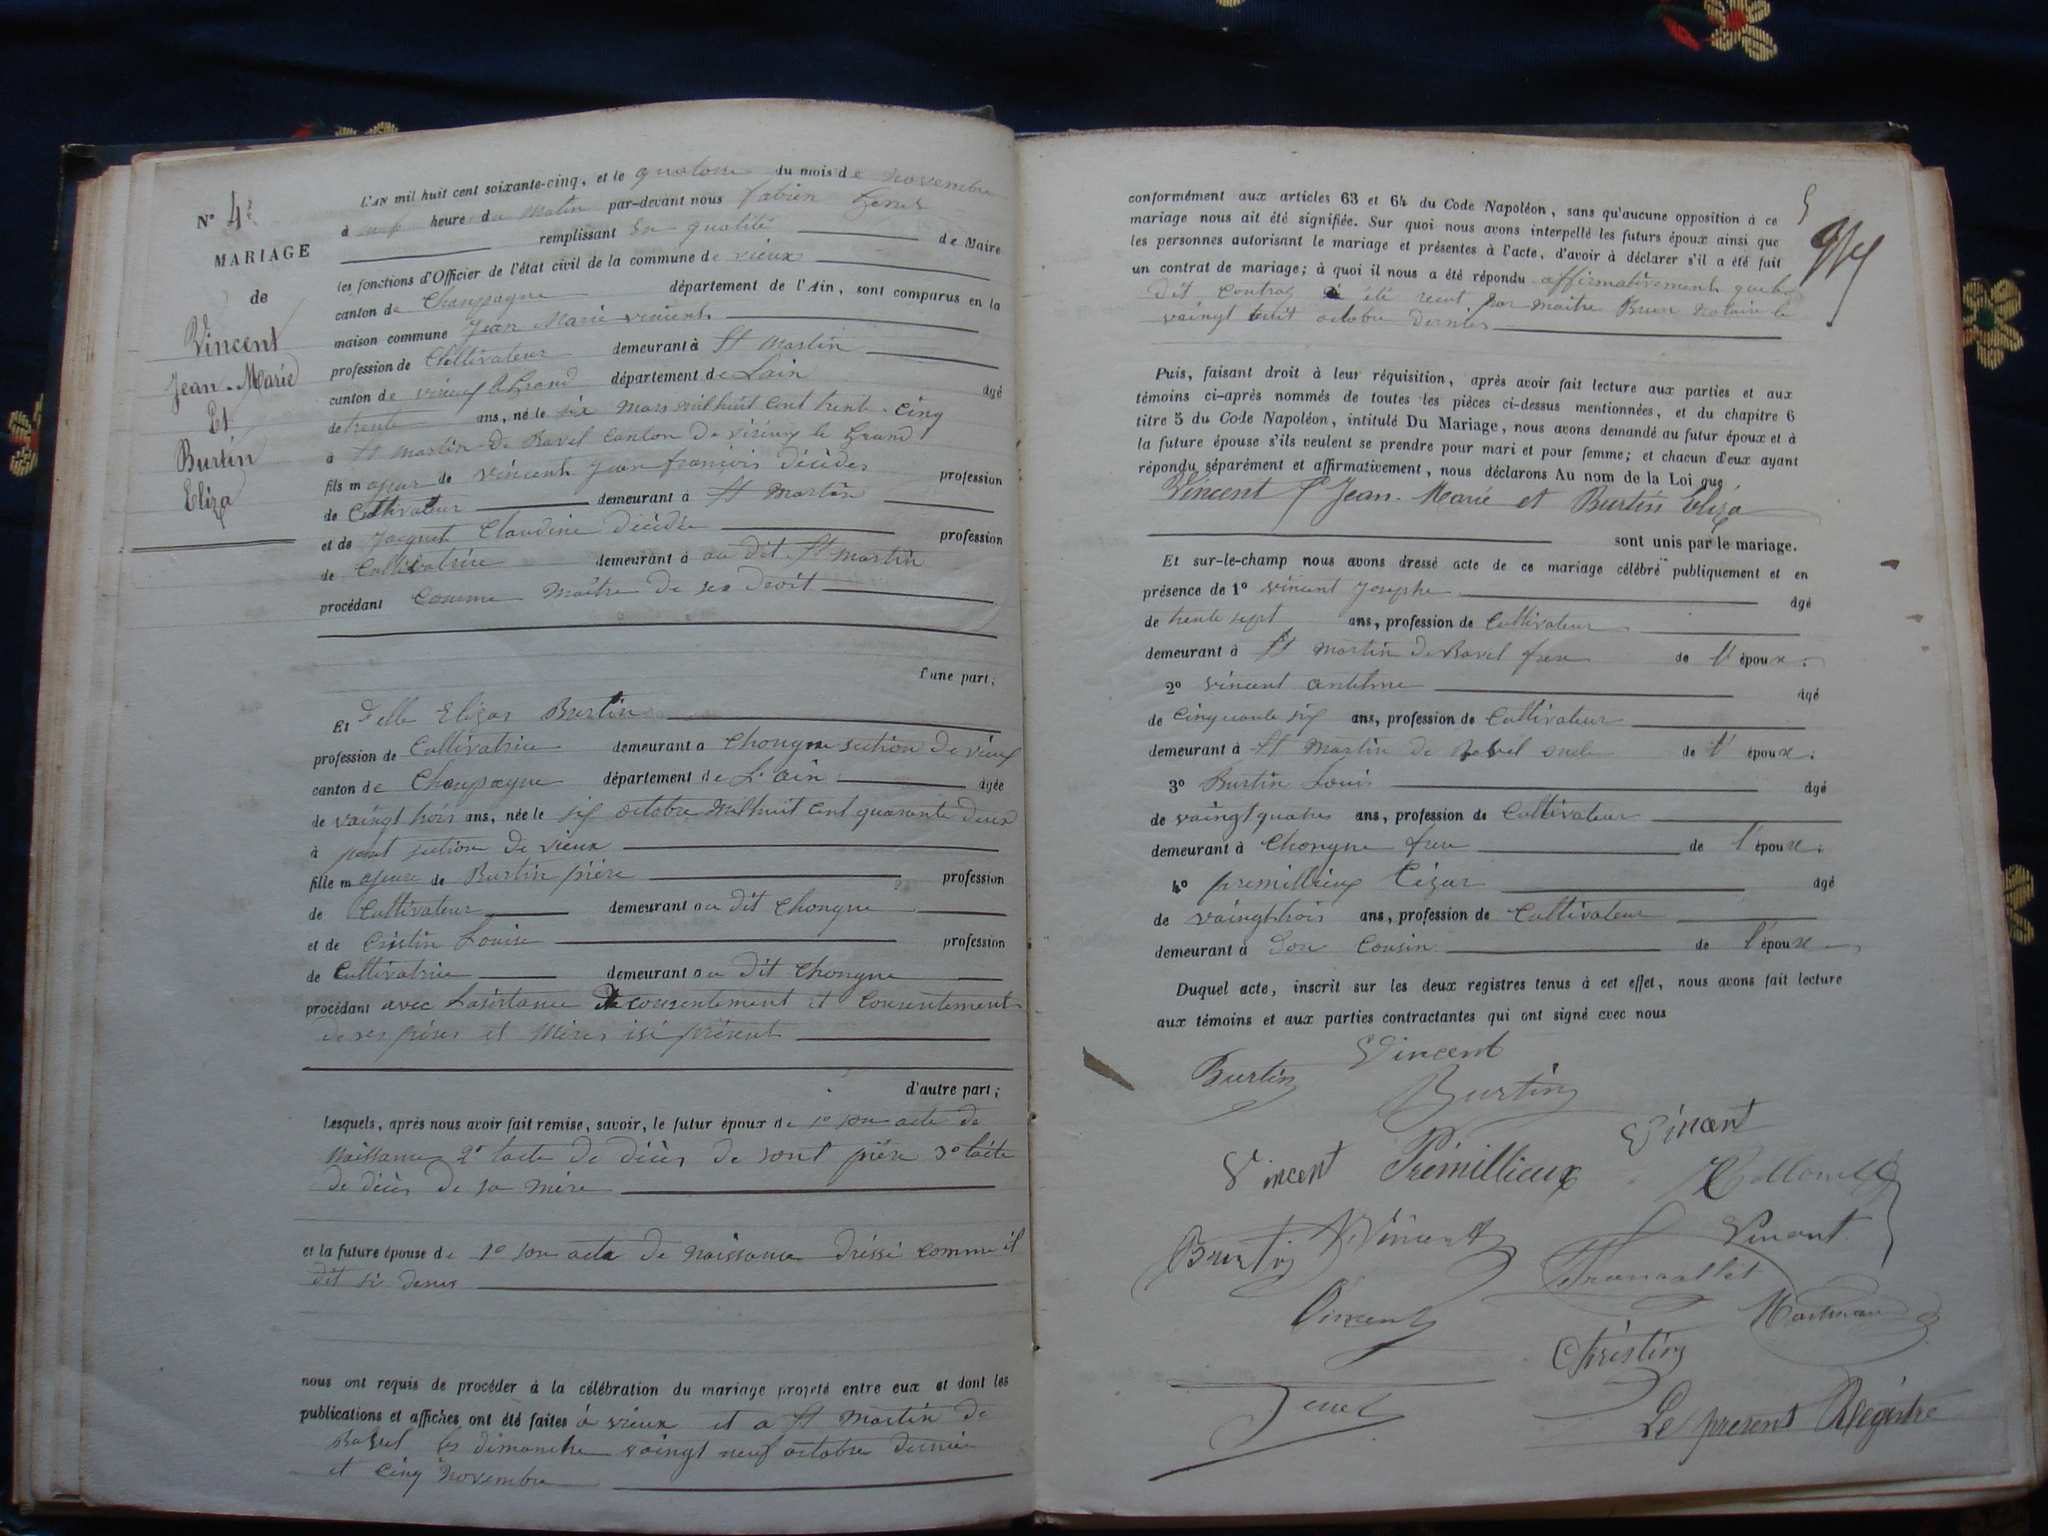 N° 4
MARIAGE
de
Vincent
Jean-Marie
Et
Burtin
Eliza
L'AN mil huit cent soixante-cinq, et le quatorze du mois de novembre
à heure du Matin par-devant nous fabien
remplissant En qualité de Maire
les fonctions d'Officier de l'état civil de la commune de vieux
canton de Champagne département de l'Ain, sont comparus en la
maison commune Jean Marie vincent
profession de Cultivateur demeurant à St Martin
canton de virieux le Grand département de Lain âgé
de trente ans, né le six Mars mil huit cent trente-cinq
à St Martin de Bavel Canton de virieux le Grand
fils majeur de vincent Jean françois décèdes profession
de Cultivateur demeurant à St Martin
et de Jacquet Claudine décèdée profession
de Cultivatrice demeurant à au dit St Martin
procédant comme Maitre de ses droit
l'une part;
Et Delle Elizas Burtin
profession de Cultivatrice demeurant a Chongne section de vieux
canton de Champagne département de L'ain âgée
de vaingt trois ans, née le six octobre mil huit cent quarante deux
à section de vieux
fille majeure de Burtin pière profession
de Cultivateur demeurant au dit Chongne
et de Louise profession
de Cultivatrice demeurant au dit Chongne
procédant avec Lasistance et consentement et Consentement
de ses pères et Mères isi présent
d'autre part;
Lesquels, après nous avoir fait remise, savoir, le futur époux de 1° son acte de
Naissance 2° lacte de décès de sont père 3° lacte
de décès de sa mère
et la future épouse de 1° son acte de Naissance dréssé comme il
dit si desus
nous ont requis de procéder à la célébration du mariage projeté entre eux et dont les
publications et affiches ont été faites à vieux et a St Martin de
Bavel les dimanche vaingt neuf octobre dernier
et cinq Novembre
5
conformément aux articles 63 et 64 du Code Napoléon, sans qu'aucune opposition à ce
mariage nous ait été signifiée. Sur quoi nous avons interpellé les futurs époux ainsi que
les personnes autorisant le mariage et présentes à l'acte, d'avoir à déclarer s'il a été fait
un contrat de mariage; à quoi il nous a été répondu affirmativement que le
dit Contrat à été recut par Maitre Brun notaire le
vaingt huit octobre dernier
Puis, faisant droit à leur réquisition, après avoir fait lecture aux parties et aux
témoins ci-après nommés de toutes les pièces ci-dessus mentionnées, et du chapitre 6
titre 5 du Code Napoléon, intitulé Du Mariage, nous avons demandé au futur époux et à
la future épouse s'ils veulent se prendre pour mari et pour femme; et chacun d'eux ayant
répondu séparément et affirmativement, nous déclarons Au nom de la Loi que
Vincent Jean-Marie et Burtin Eliza
sont unis par le mariage.
Et sur-le-champ nous avons dressé acte de ce mariage célébré publiquement et en
présence de 1° vincent Josephe âgé
de trente sept ans, profession de Cultivateur
demeurant à St Martin de Bavel frere de l'époux.
2° vincent antelme âgé
de cinquante six ans, profession de Cultivateur
demeurant à St Martin de Bavel oncle de l'époux.
3° Burtin Louis âgé
de vaingt quatre ans, profession de Cultivateur
demeurant à Chongne frere de l'époux.
4° premillieux Cézar âgé
de vaingt trois ans, profession de Cultivateur
demeurant à Son Cousin de l'époux
Duquel acte, inscrit sur les deux registres tenus à cet effet, nous avons fait lecture
aux témoins et aux parties contractantes qui ont signé avec nous
Vincent
Burtin
Burtin
Vincent
Vincent Prémillieux
Burtin Vincent Vincent
Vincent
Christin
Le présent Régistre